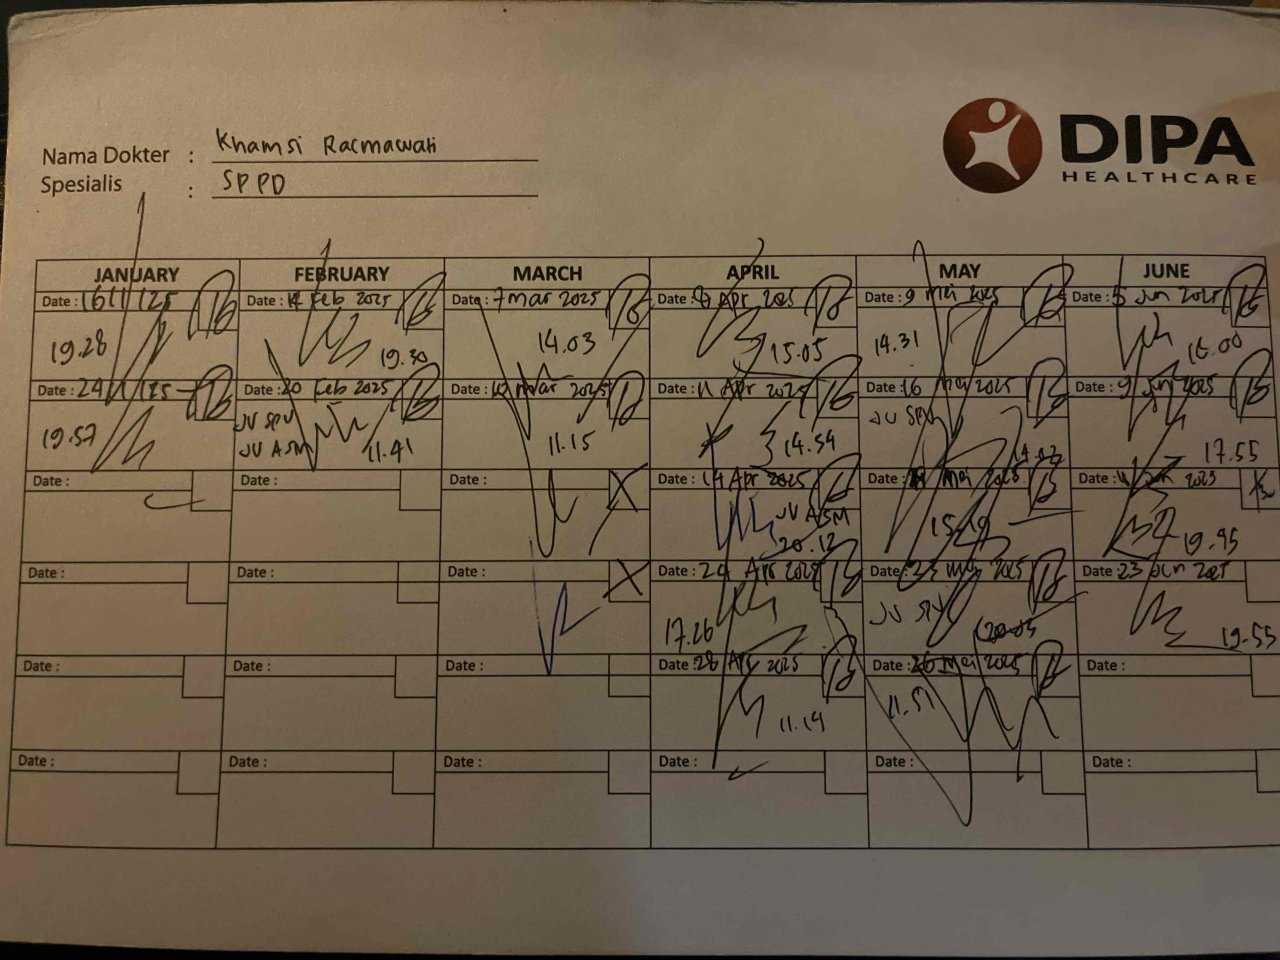 Nama Dokter : Khamsi Racmawati
Spesialis : SPPD
DIPA
HEALTHCARE
JANUARY FEBRUARY MARCH APRIL MAY JUNE
Date : 16/1/25 Date : 14 Feb 2025 Date : 7 mar 2025 Date : Apr 2025 Date : 9 mei 2025 Date : 5 Jun 2025
19.28 19.30 14.03 15.05 14.31 16.00
Date : 24/1/25 Date : 20 Feb 2025 Date : mar 2025 Date : 11 Apr 2025 Date : 16 mei 2025 Date : 9 Jun 2025
19.57 JV SPV JV ASM 11.41 11.15 14.54 JV SPV 17.55
Date : Date : Date : Date : 14 Apr 2025 Date : mei 2025 Date : 2025
JV ASM
20.12 15.19 19.45
Date : Date : Date : Date : 24 Apr 2025 Date : 23 mei 2025 Date : 23 Jun 2025
17.26 JV SPV 20.05 19.55
Date : Date : Date : Date : 28 Apr 2025 Date : 26 mei 2025 Date :
11.14 11.51
Date : Date : Date : Date : Date : Date :